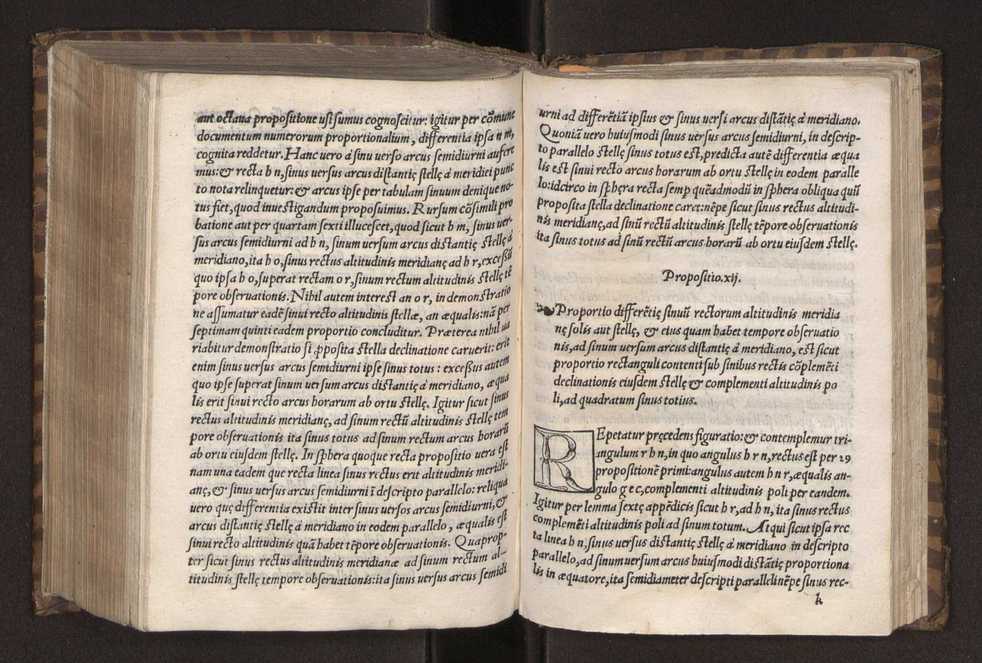 aut octaua propositione usi sumus cognoscitur: igitur per cõmune
documentum numerorum proportionalium, differentia ipsa n m,
cognita reddetur. Hanc uero à sinu uerso arcus semidiurni aufere
mus: & recta h n, sinus uersus arcus distantię stellę à meridiei punc
to nota relinquetur: & arcus ipse per tabulam sinuum denique no-
tus fiet, quod inuestigandum proposuimus. Rursum cõsimili pro
batione aut per quartam sexti illucescet, quod sicut h m, sinus uer-
sus arcus semidiurni ad h n, sinum uersum arcus distantię stellę à
meridiano, ita h o, sinus rectus altitudinis meridianę ad h r, excessũ
quo ipsa h o, superat rectam o r, sinum rectum altitudinis stellę tẽ
pore obseruationis. Nihil autem interest an o r, in demonstratio
ne assumatur eadẽ sinui recto altitudinis stellæ, an æqualis: nã per
septimam quinti eadem proportio concluditur. Præterea nihil ua
riabitur demonstratio si ꝓposita stella declinatione caruerit: erit
enim sinus uersus arcus semidiurni ipse sinus totus: excessus autem
quo ipse superat sinum uersum arcus distantię à meridiano, æqua
lis erit sinui recto arcus horarum ab ortu stellę. Igitur sicut sinus
rectus altitudinis meridianę, ad sinum rectũ altitudinis stellę tem
pore obseruationis ita sinus totus ad sinum rectum arcus horarũ
ab ortu eiusdem stellę. In sphęra quoque recta propositio uera est
nam una eadem que recta linea sinus rectus erit altitudinis meridi-
anę, & sinus uersus arcus semidiurni ĩ descripto parallelo: reliqua
uero quę differentia existit inter sinus uersos arcus semidiurni, &
arcus distantię stellę à meridiano in eodem parallelo, æqualis est
sinui recto altitudinis quã habet tẽpore obseruationis. Quaprop-
ter sicut sinus rectus altitudinis meridianæ ad sinum rectum al-
titudinis stellę tempore obseruationis: ita sinus uersus arcus semidi
urni ad differẽtiã ipsius & sinus uersi arcus distãtię à meridiano.
Quoniã uero huiusmodi sinus uersus arcus semidiurni, in descrip-
to parallelo stellę sinus totus est, predicta autẽ differentia æqua
lis est sinui recto arcus horarum ab ortu stellę in eodem paralle
lo: idcirco in sphęra recta semp quẽadmodũ in sphera obliqua quũ
proposita stella declinatione caret: nẽpe sicut sinus rectus altitudi-
nis meridianę, ad sinũ rectũ altitudinis stellę tẽpore obseruationis
ita sinus totus ad sinũ rectũ arcus horarũ ab ortu eiusdem stellę.
Propositio.xij.
Proportio differẽtię sinuũ rectorum altitudinis meridia
nę solis aut stellę, & eius quam habet tempore obseruatio
nis, ad sinum uersum arcus distantię à meridiano, est sicut
proportio rectanguli contenti sub sinibus rectis cõplemẽti
declinationis eiusdem stellę & complementi altitudinis po
li, ad quadratum sinus totius.
REpetatur pręcedens figuratio: & contemplemur tri-
angulum r h n, in quo angulus h r n, rectus est per 29
propositionẽ primi: angulus autem h n r, æqualis an-
gulo g e c, complementi altitudinis poli per eandem.
Igitur per lemma sextę appẽdicis sicut h r, ad h n, ita sinus rectus
complemẽti altitudinis poli ad sinum totum. At qui sicut ipsa rec
ta linea h n, sinus uersus distantię stellę à meridiano in descripto
parallelo, ad sinum uersum arcus huiusmodi distãtię proportiona
lis in æquatore, ita semidiameter descripti paralleli nẽpe sinus rec-
k